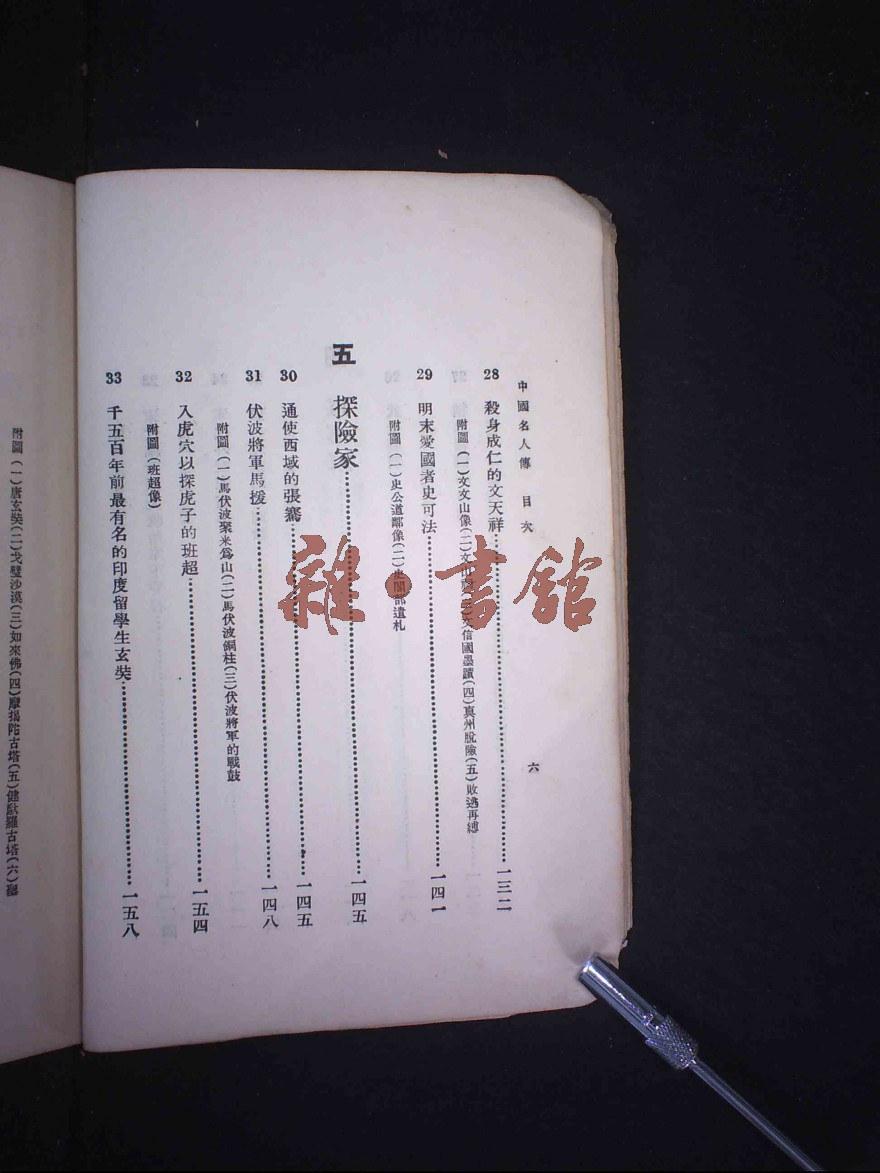 中國名人傳　目次
六
28 殺身成仁的文天祥……一三二
附圖(一)文文山像(二)文山 文信國墨蹟(四)真州脫險(五)敗逃再縛
29 明末愛國者史可法……一四一
附圖(一)史公道鄰像(二)史閣部遺札
五 探險家……一四五
30 通使西域的張騫……一四五
31 伏波將軍馬援……一四八
附圖(一)馬伏波聚米為山(二)馬伏波銅柱(三)伏波將軍的戰鼓
32 入虎穴以探虎子的班超……一五四
附圖(班超像)
33 千五百年前最有名的印度留學生玄奘……一五八
附圖(一)唐玄奘(二)戈壁沙漠(三)如來佛(四)摩揭陀古塔(五)健馱羅古塔(六)
雜·書館